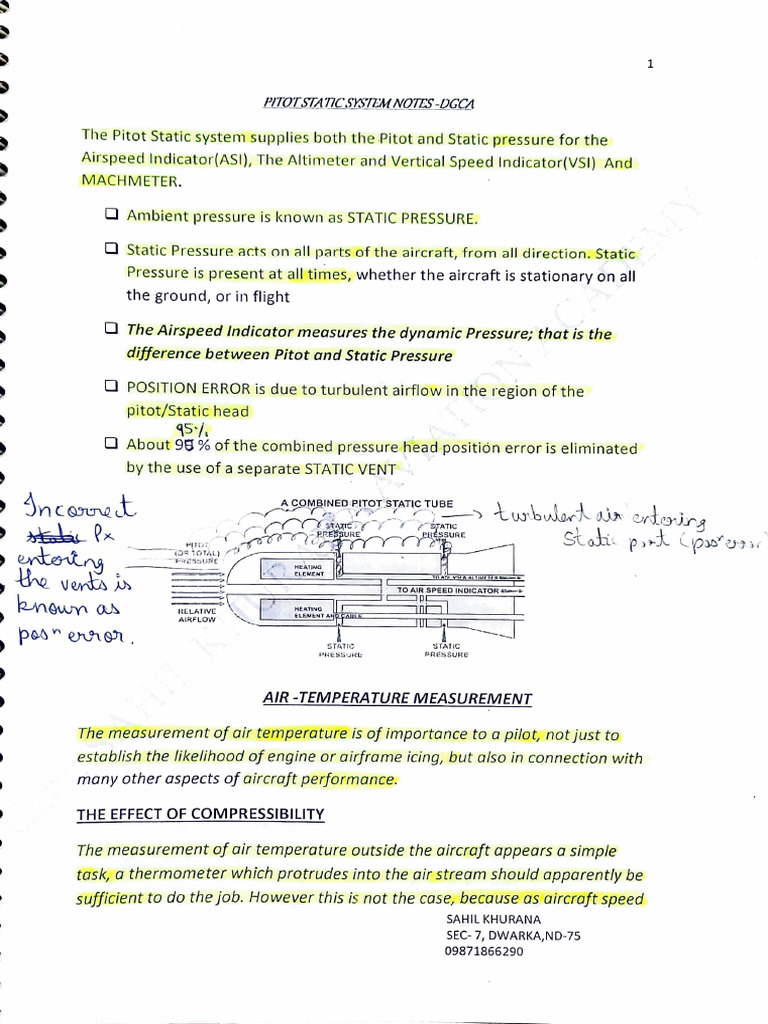 1
PITOT STATIC SYSTEM NOTES -DGCA
The Pitot Static system supplies both the Pitot and Static pressure for the
Airspeed Indicator(ASI), The Altimeter and Vertical Speed Indicator(VSI) And
MACHMETER.
❑ Ambient pressure is known as STATIC PRESSURE.
❑ Static Pressure acts on all parts of the aircraft, from all direction. Static
Pressure is present at all times, whether the aircraft is stationary on all
the ground, or in flight
❑ The Airspeed Indicator measures the dynamic Pressure; that is the
difference between Pitot and Static Pressure
❑ POSITION ERROR is due to turbulent airflow in the region of the
pitot/Static head
95%
❑ About 95 % of the combined pressure head position error is eliminated
by the use of a separate STATIC VENT
Incorrect
static Px
entering
the vents is
known as
posⁿ error.
A COMBINED PITOT STATIC TUBE
turbulent air entering
Static port (posⁿ error)
STATIC
PRESSURE
STATIC
PRESSURE
PITOT
(OR TOTAL)
PRESSURE
HEATING
ELEMENT
TO ASI, VSI & ALTIMETER
TO AIR SPEED INDICATOR
HEATING
ELEMENT AND CABLE
RELATIVE
AIRFLOW
STATIC
PRESSURE
STATIC
PRESSURE
AIR -TEMPERATURE MEASUREMENT
The measurement of air temperature is of importance to a pilot, not just to
establish the likelihood of engine or airframe icing, but also in connection with
many other aspects of aircraft performance.
THE EFFECT OF COMPRESSIBILITY
The measurement of air temperature outside the aircraft appears a simple
task, a thermometer which protrudes into the air stream should apparently be
sufficient to do the job. However this is not the case, because as aircraft speed
SAHIL KHURANA
SEC- 7, DWARKA,ND-75
09871866290